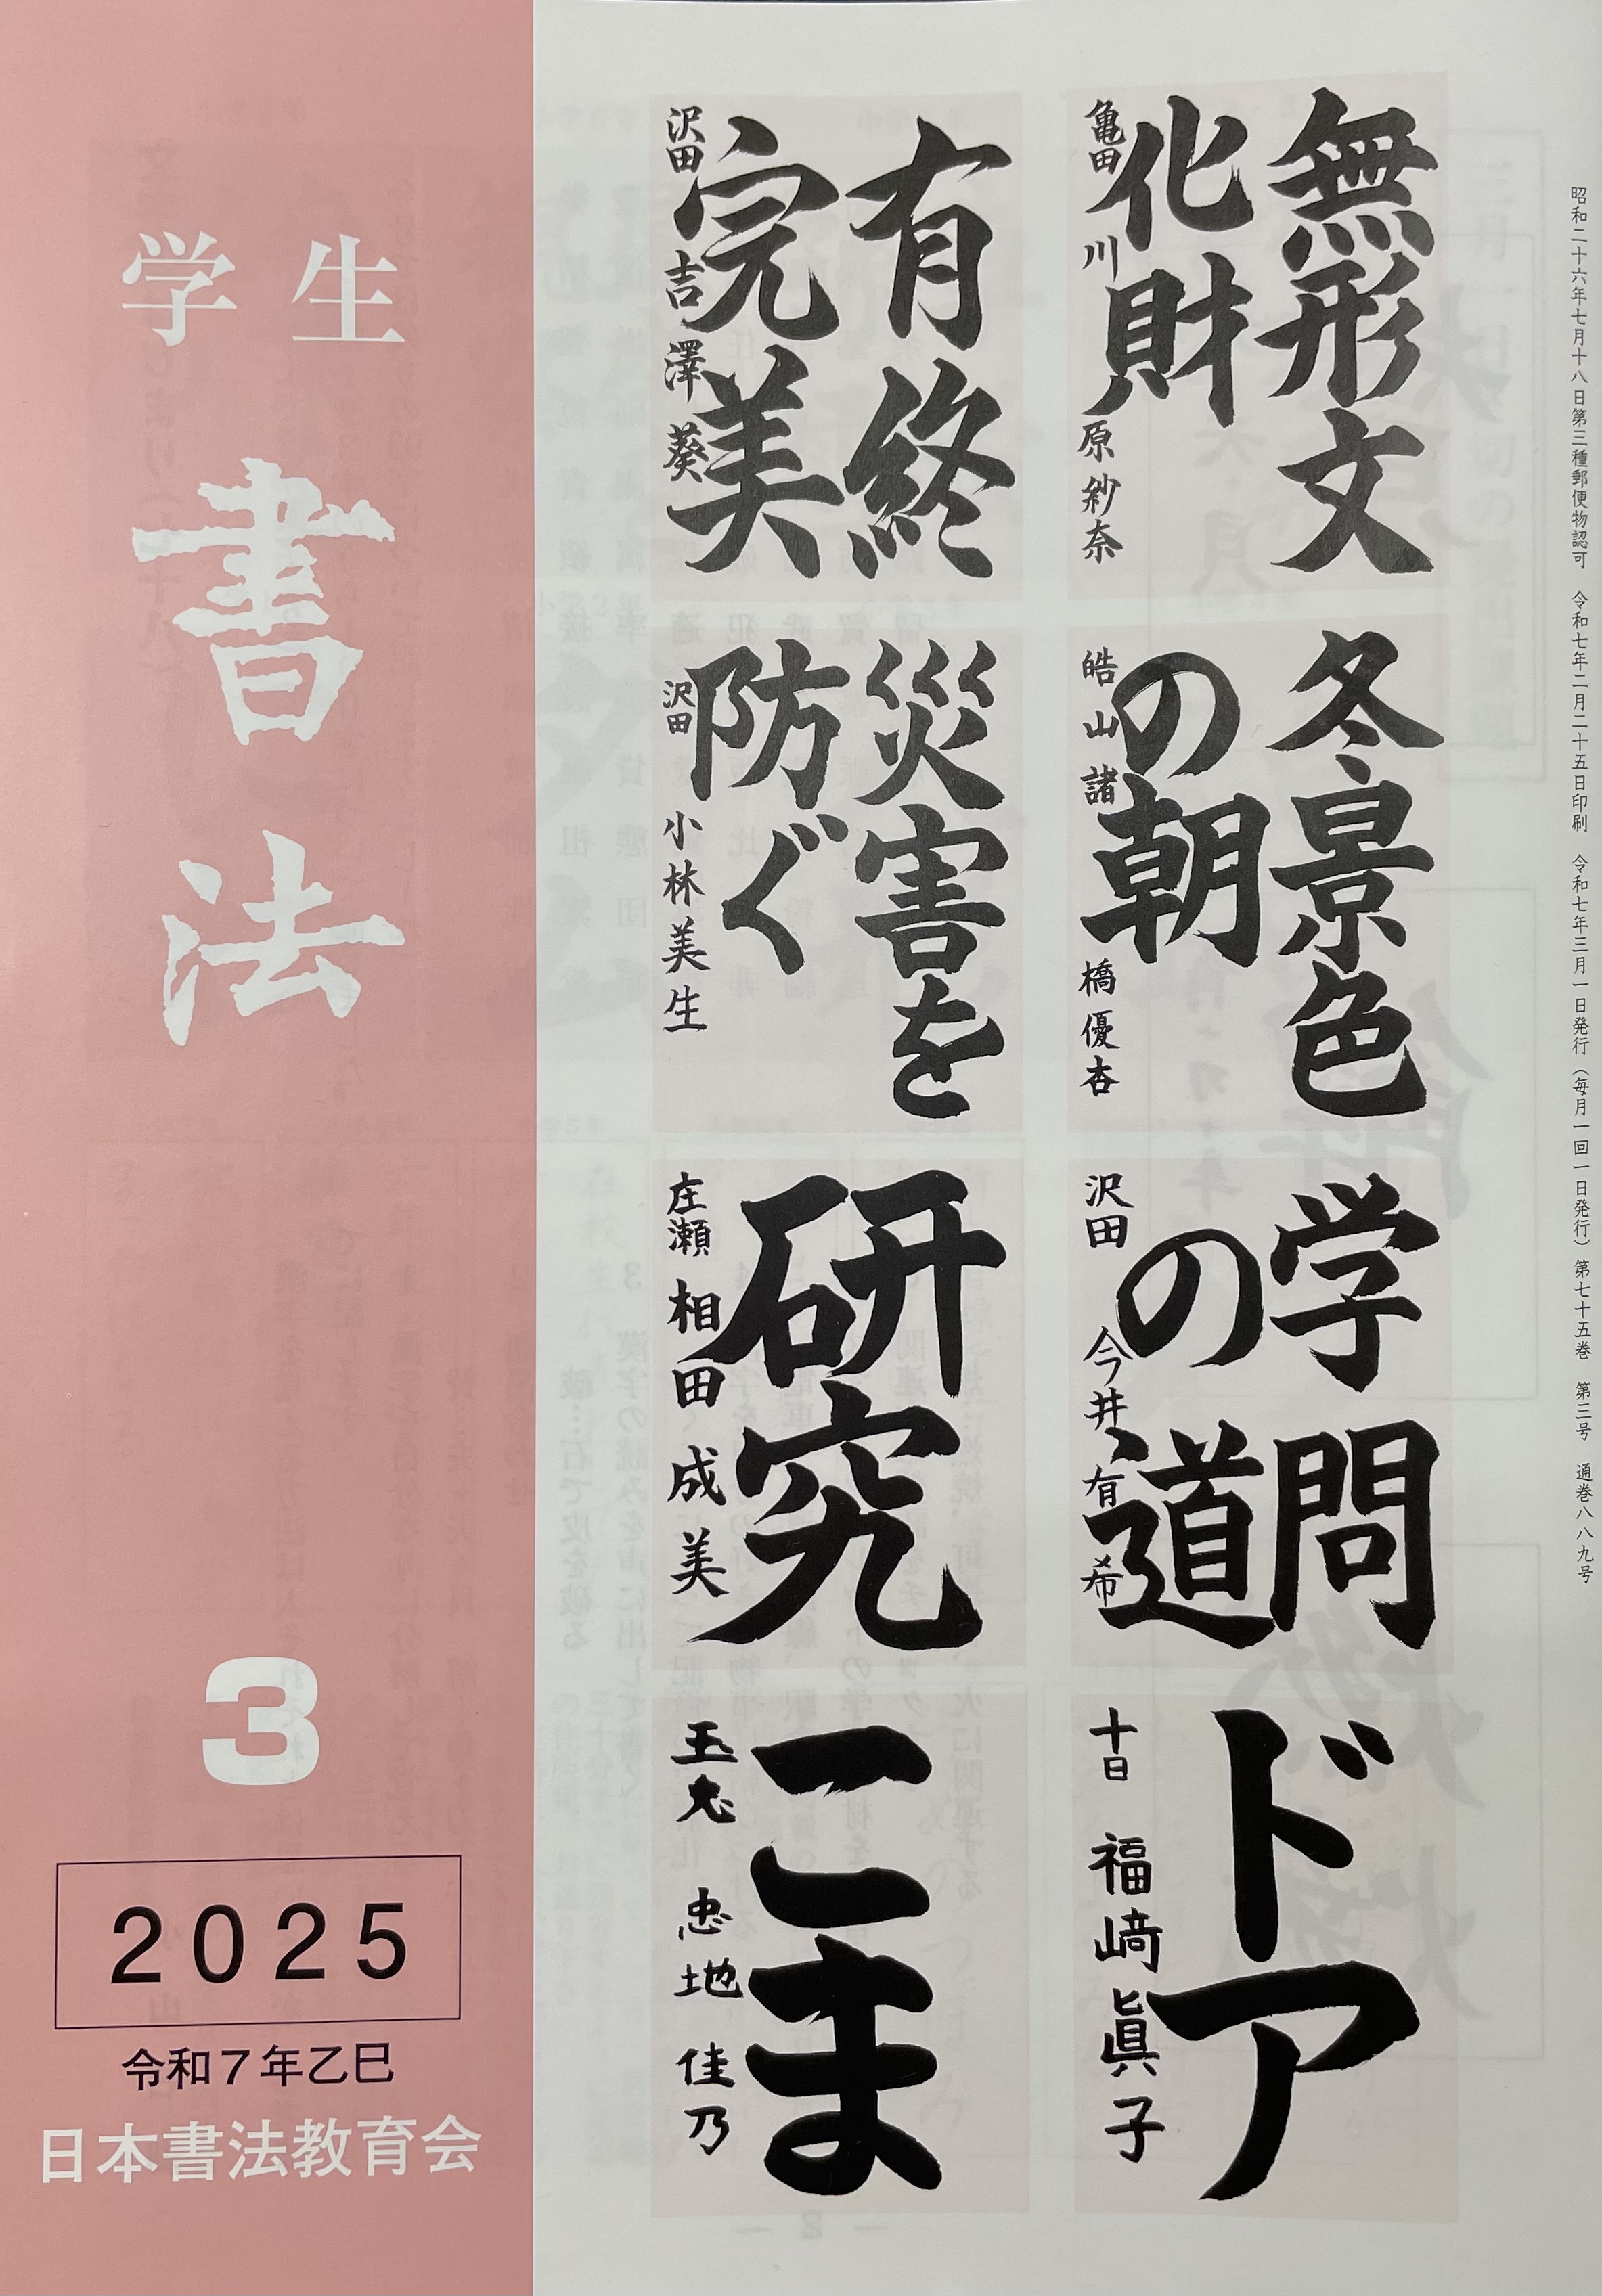 昭和二十六年七月十八日第三種郵便物認可　令和七年二月二十五日印刷　令和七年三月一日発行（毎月一回一日発行）第七十五巻　第三号　通巻八八九号
無形文
化財
亀田　川原紗奈
有終
完美
沢田　吉澤葵
冬景色
の朝
皓山　諸橋優杏
災害を
防ぐ
沢田　小林美生
学問
の道
沢田　今井有希
研究
庄瀬　相田成美
ドア
十日　福﨑眞子
こま
玉兎　忠地佳乃
学生
書法
3
2025
令和7年乙巳
日本書法教育会